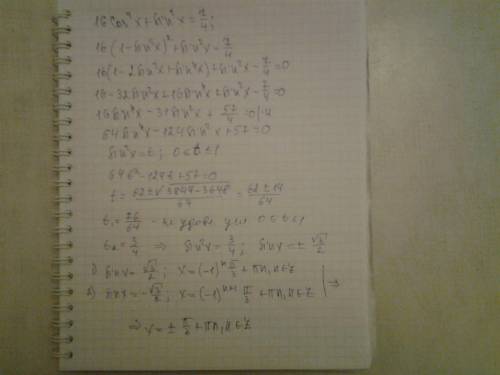 16cos⁴x + sin²x = 7/4;
16(1-sin²x)² + sin²x = 7/4
16(1-2sin²x+sin⁴x)+sin²x - 7/4 = 0
16-32sin²x+16sin⁴x+sin²x - 7/4 = 0
16sin⁴x - 31sin²x + 57/4 = 0 |·4
64sin⁴x - 124sin²x + 57 = 0
sin²x = t; 0≤t≤1
64t² - 124t + 57 = 0
t = (62±√(3844-3648))/64 = (62±14)/64
t₁ = 76/64 - не удовл. усл 0≤t≤1
t₂ = 3/4 ⇒ sin²x = 3/4; sinx = ± √3/2
1) sinx = √3/2; x = (-1)ⁿ π/3 + πn, n∈Z
2) sinx = -√3/2; x = (-1)ⁿ⁺¹ π/3 + πn, n∈Z | ⇒
⇒ x = ± π/3 + πn, n∈Z